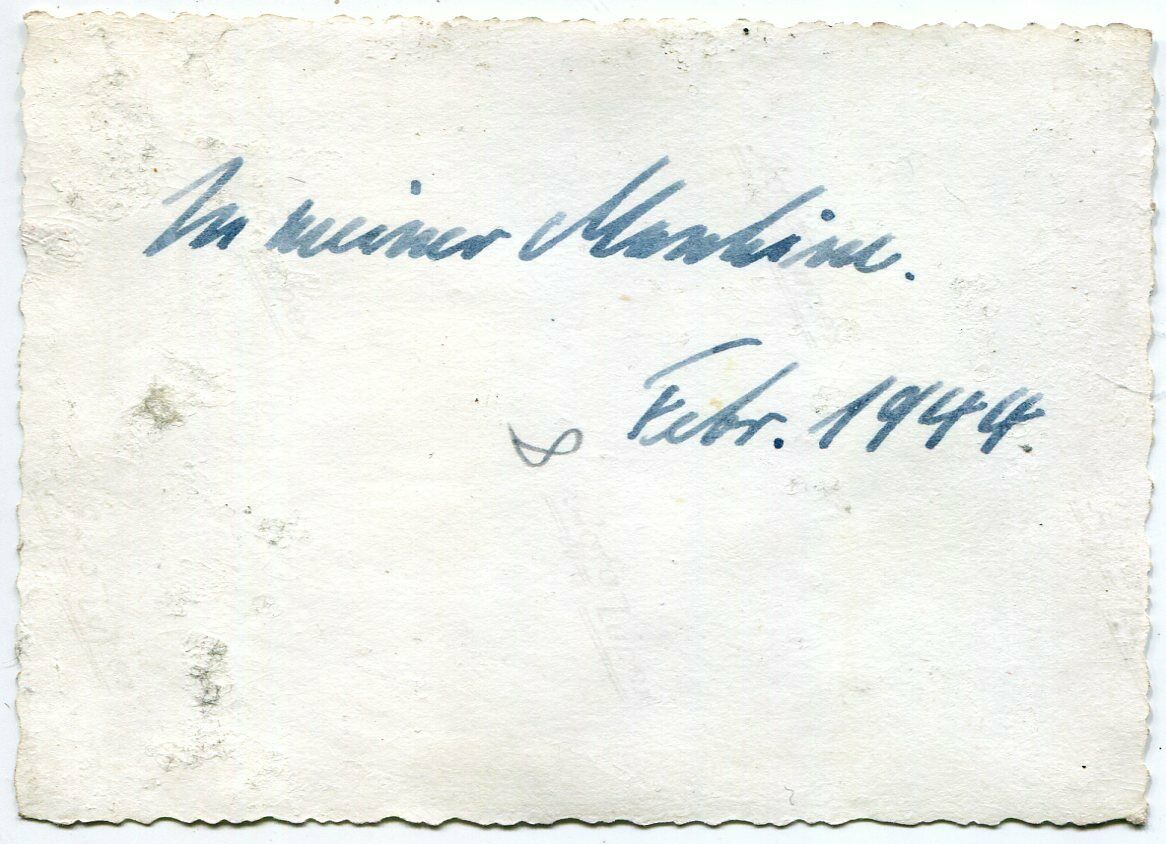 In meiner Maschine.
Febr. 1944.